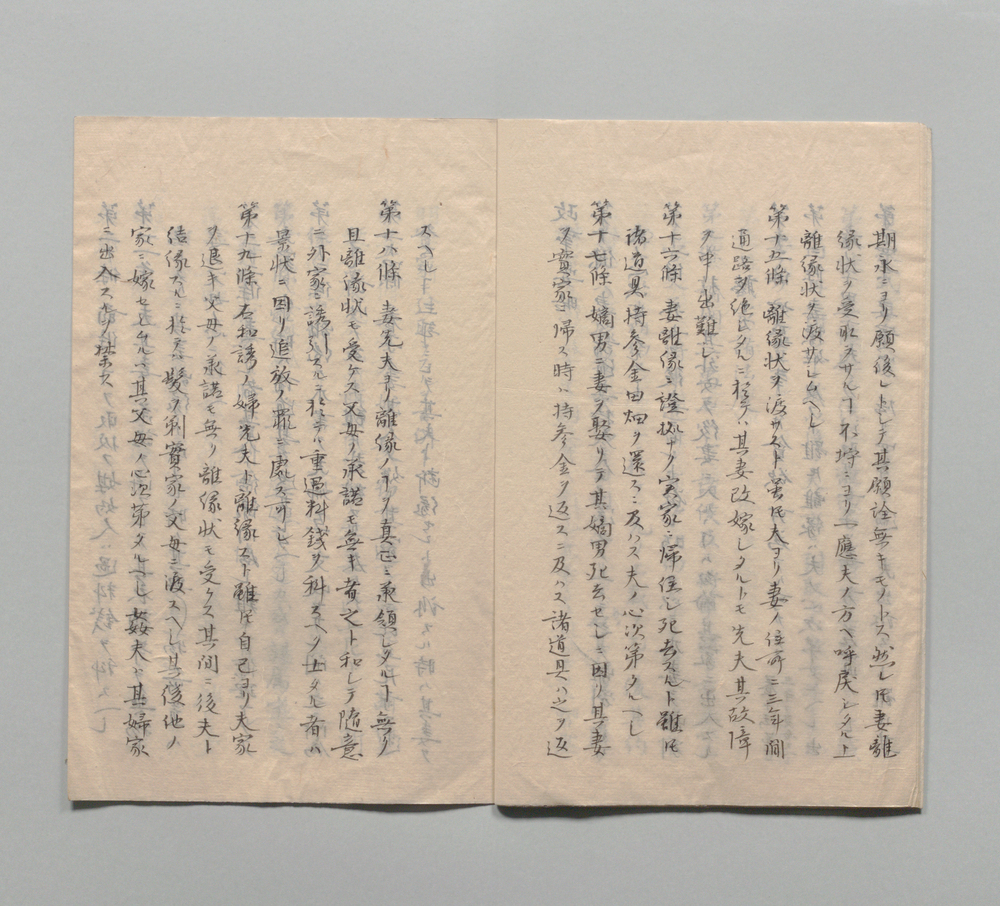 期永ニヨリ願後レトシテ其願詮無キモノトス然レ𪜈妻離
縁状ヲ受取ラサルヿ不埒ニヨリ一應夫ノ方ヘ呼戻シタル上
離縁状ヲ渡サシムヘシ
第十五條 離縁状ヲ渡サスト雖𪜈夫ヨリ妻ノ住所ニ三年間
通路ヲ絶レタルニ於テハ其妻改嫁シタルトモ先夫其故障
ヲ申出難シ
第十六條 妻離縁ノ證拠ナク実家ニ帰住シ死去スルト雖𪜈
諸道具持参金田畑ヲ還スニ及ハス夫ノ心次第タルヘシ
第十七條 嫡男ニ妻ヲ娶リテ其嫡男死去セシニ因リ其妻
ヲ實家ニ帰ス時ハ持参金ヲ返スニ及ハス諸道具ハ之ヲ返
スヘシ
第十八條 妻先夫ヨリ離縁ノヿヲ真正ニ承領シタルヿ無ク
且離縁状モ受ケス父母ノ承諾モ無キ者之ト和シテ随意
ニ外家ニ誘引スルニ於テハ重過料銭ヲ科スヘク士タル者ハ
景状ニ因リ追放ノ罪ニ處ス可シ
第十九條 右和誘ノ婦先夫ト離縁スト雖𪜈自己ヨリ夫家
ヲ退キ父母ノ承諾モ無ク離縁状モ受ケス其間ニ後夫ト
結縁スルニ於テハ髪ヲ剃實家ノ父母ニ渡スヘシ其後他ノ
家ニ嫁セシムルハ其父母ノ心次第タルヘシ姦夫ハ其婦家
ニ出入スルヲ禁ス